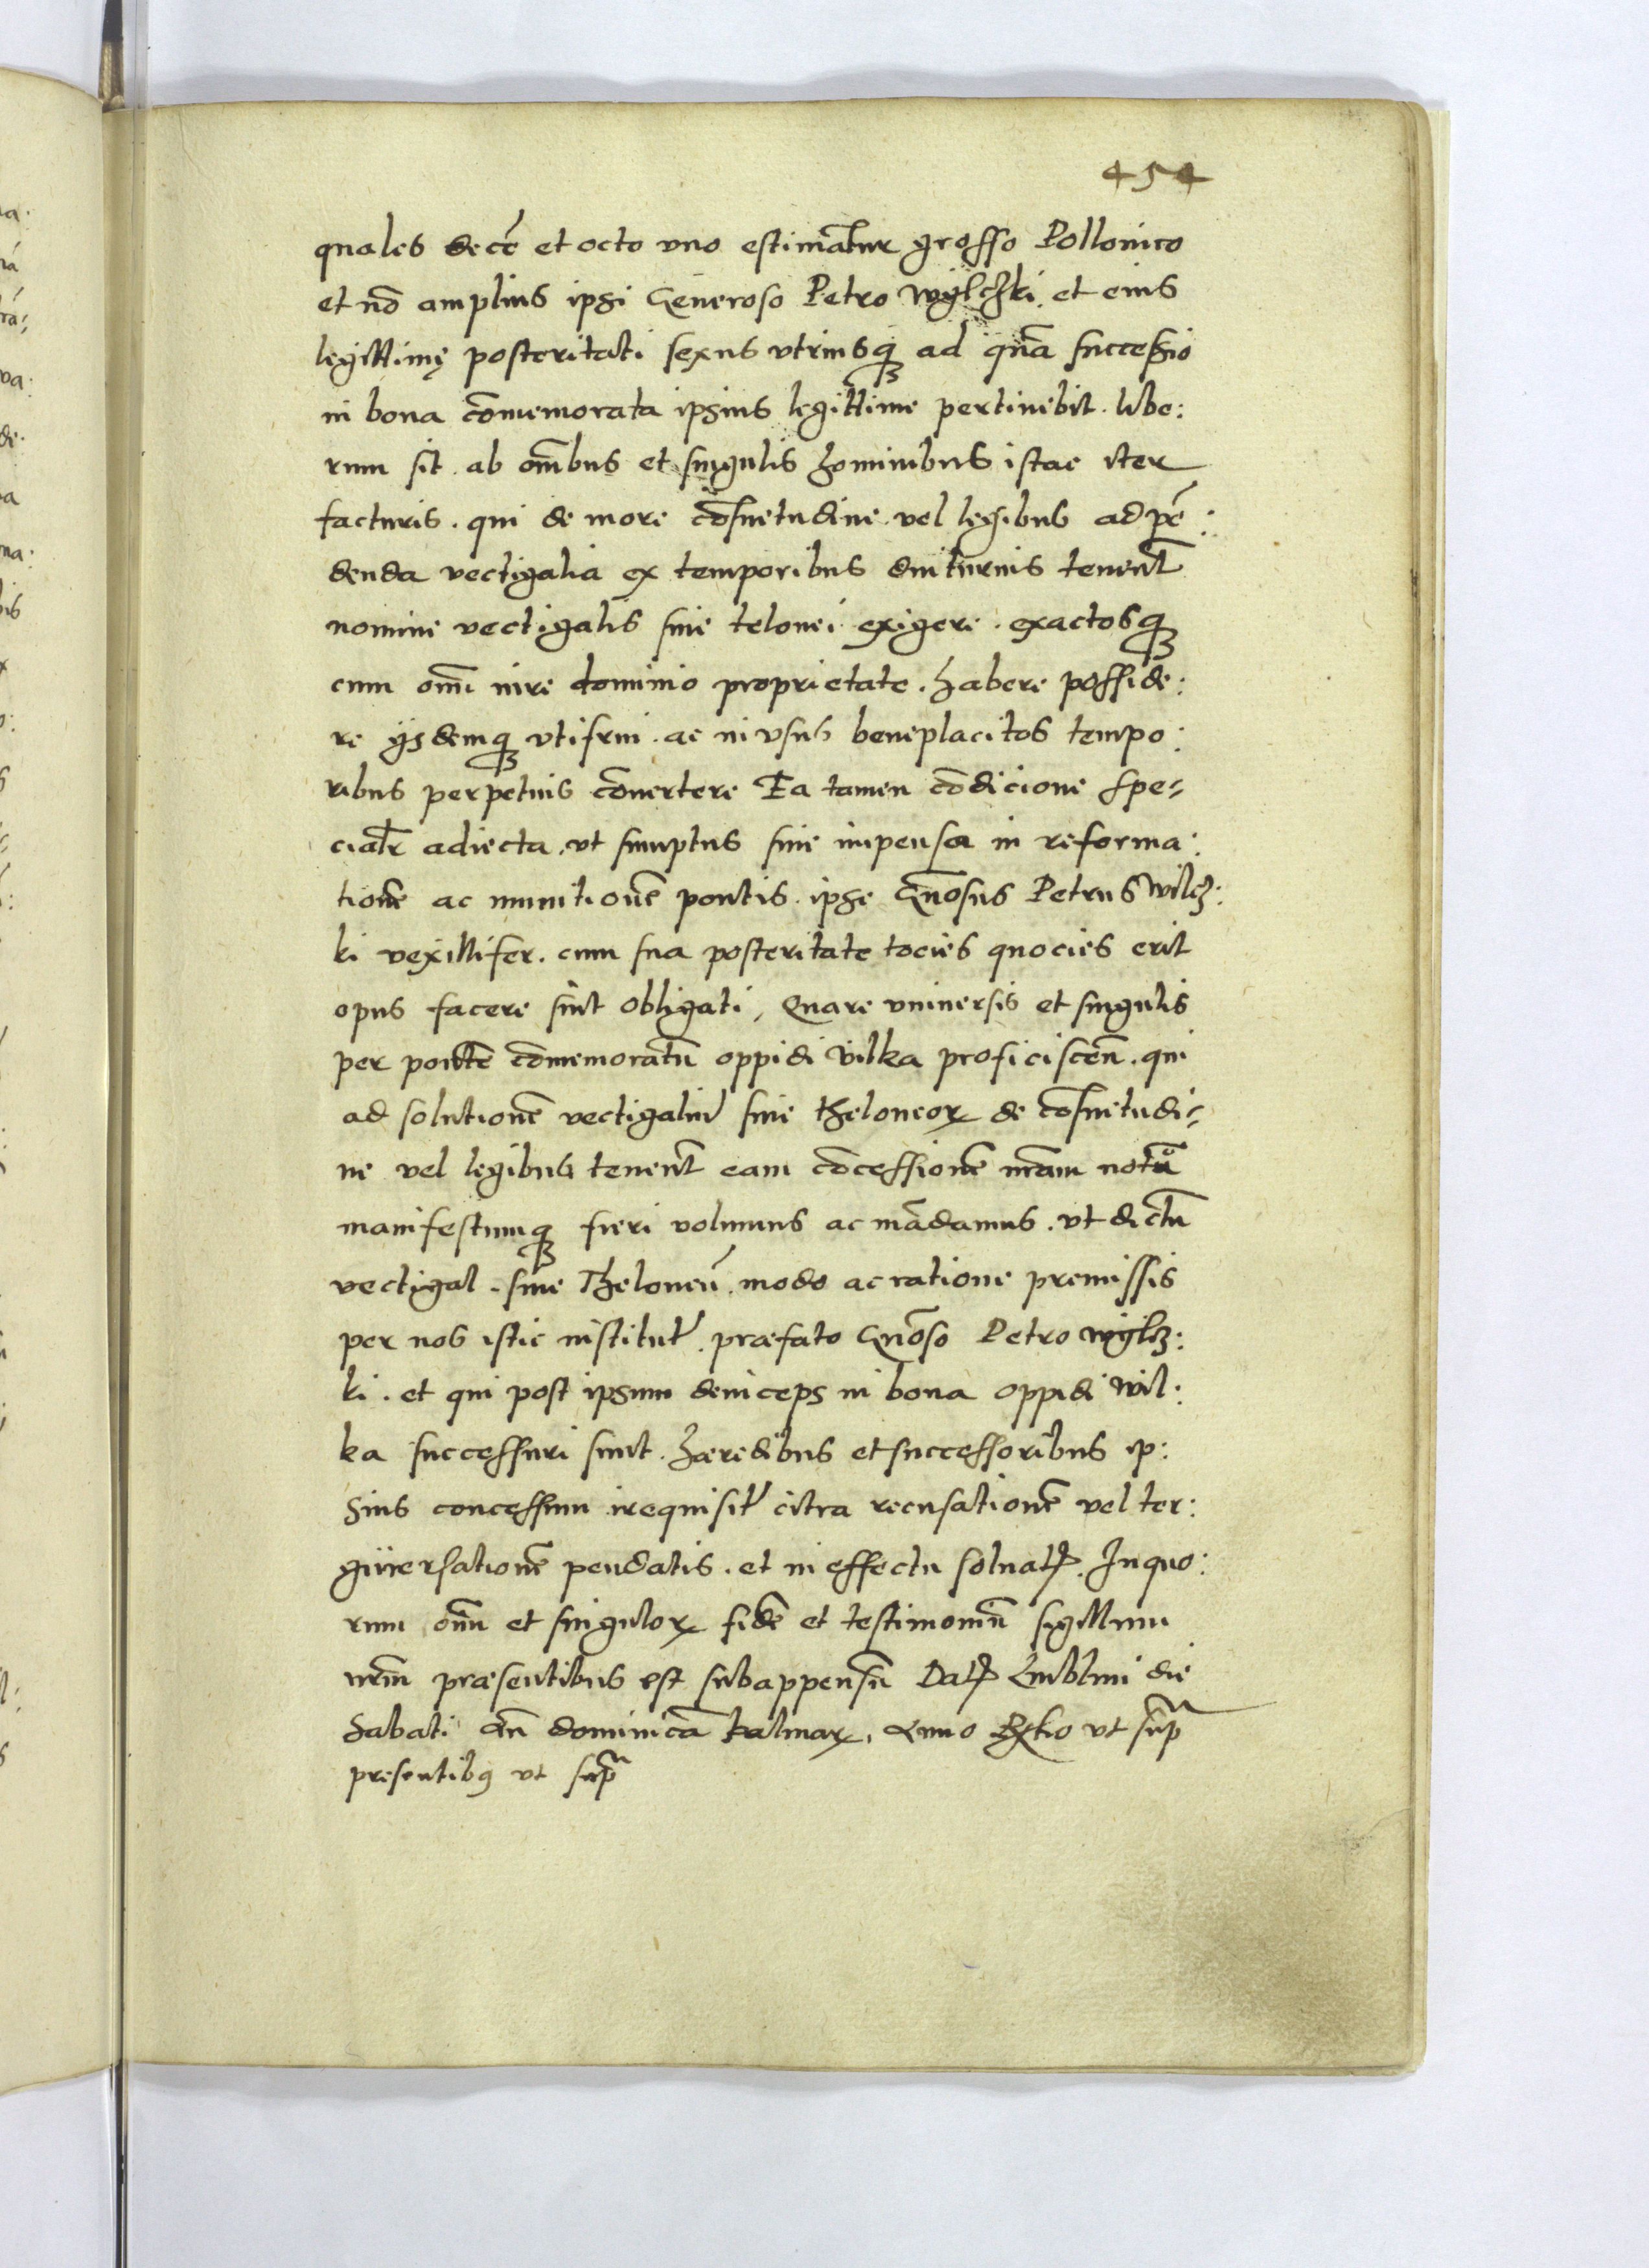 454
quales decē et octo vno estimātur grosso Pollonico
et nō amplius ipsi Generoso Petro Wylchki et eius
legittimę posteritati sexus vtriusq̨ ad quā successio
in bona cōmemorata ipsius legittime pertinebit. libe:
rum sit ab om̄ibus et singulis hominibus istac iter
facturis. qui de more cōsuetudine vel legibus ad pē:
denda vectigalia ex temporibus diuturnis tenent̄
nomine vectigalis siue telonei exigere. exactosq̨
cum om̄i iure dominio proprietate. habere posside:
re ijsdemq̨ vtifrui. ac in vsus beneplacitos tempo:
ribus perpetuis cōuertere Ea tamen cōdicione spe-
cialr̄ adiecta. vt sumptus siue impensa in reforma:
tionē ac munitionē pontis. ipse Gn̄osus Petrus Wilcz:
ki vexillifer. cum sua posteritate tocies quocies erit
opus facere sint obligati, Quare vniuersis et singulis
per pontē cōmemoratū oppidi Vilka proficiscen̄. qui
ad solutionē vectigaliū siue theloneoꝝ de cōsuetudi-
ne vel legibus tenent̄ eam cōcessionē nr̄am notū
manifestumq̨ fieri volumus ac mādamus. vt dictū
vectigal. siue Theloneū. modo ac ratione premissis
per nos istic institutū. praefato Gn̄oso Petro Wylcz:
ki. et qui post ipsum deinceps in bona oppidi Wil:
ka successuri sunt. haeredibus et successoribus ip:
sius concessum irequisitū citra recusationē vel ter:
giuersationē pendatis. et in effectu soluatꝭ. In quo:
rum om̄ium et singuloꝝ fidē et testimoniū sigillum
nr̄m praesentibus est subappensū Datꝭ Lublini die
Sabati an̄ dominicā kalmaꝝ, Anno ut sup̄
presentibꝰ vt sup̄